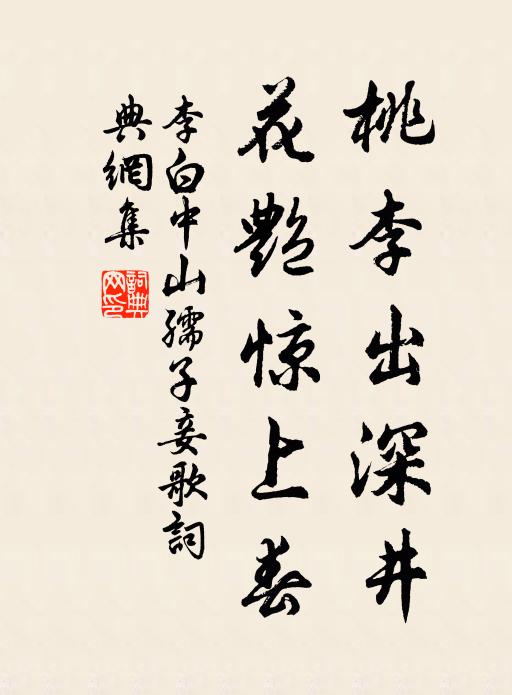 桃李出深井
花艷惊上春
李白中山孺子妾歌詞
典網集
詞典
网印